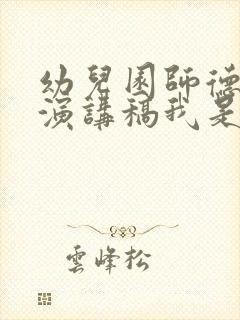 幼兒園師德
演講稿我是
雲峰松